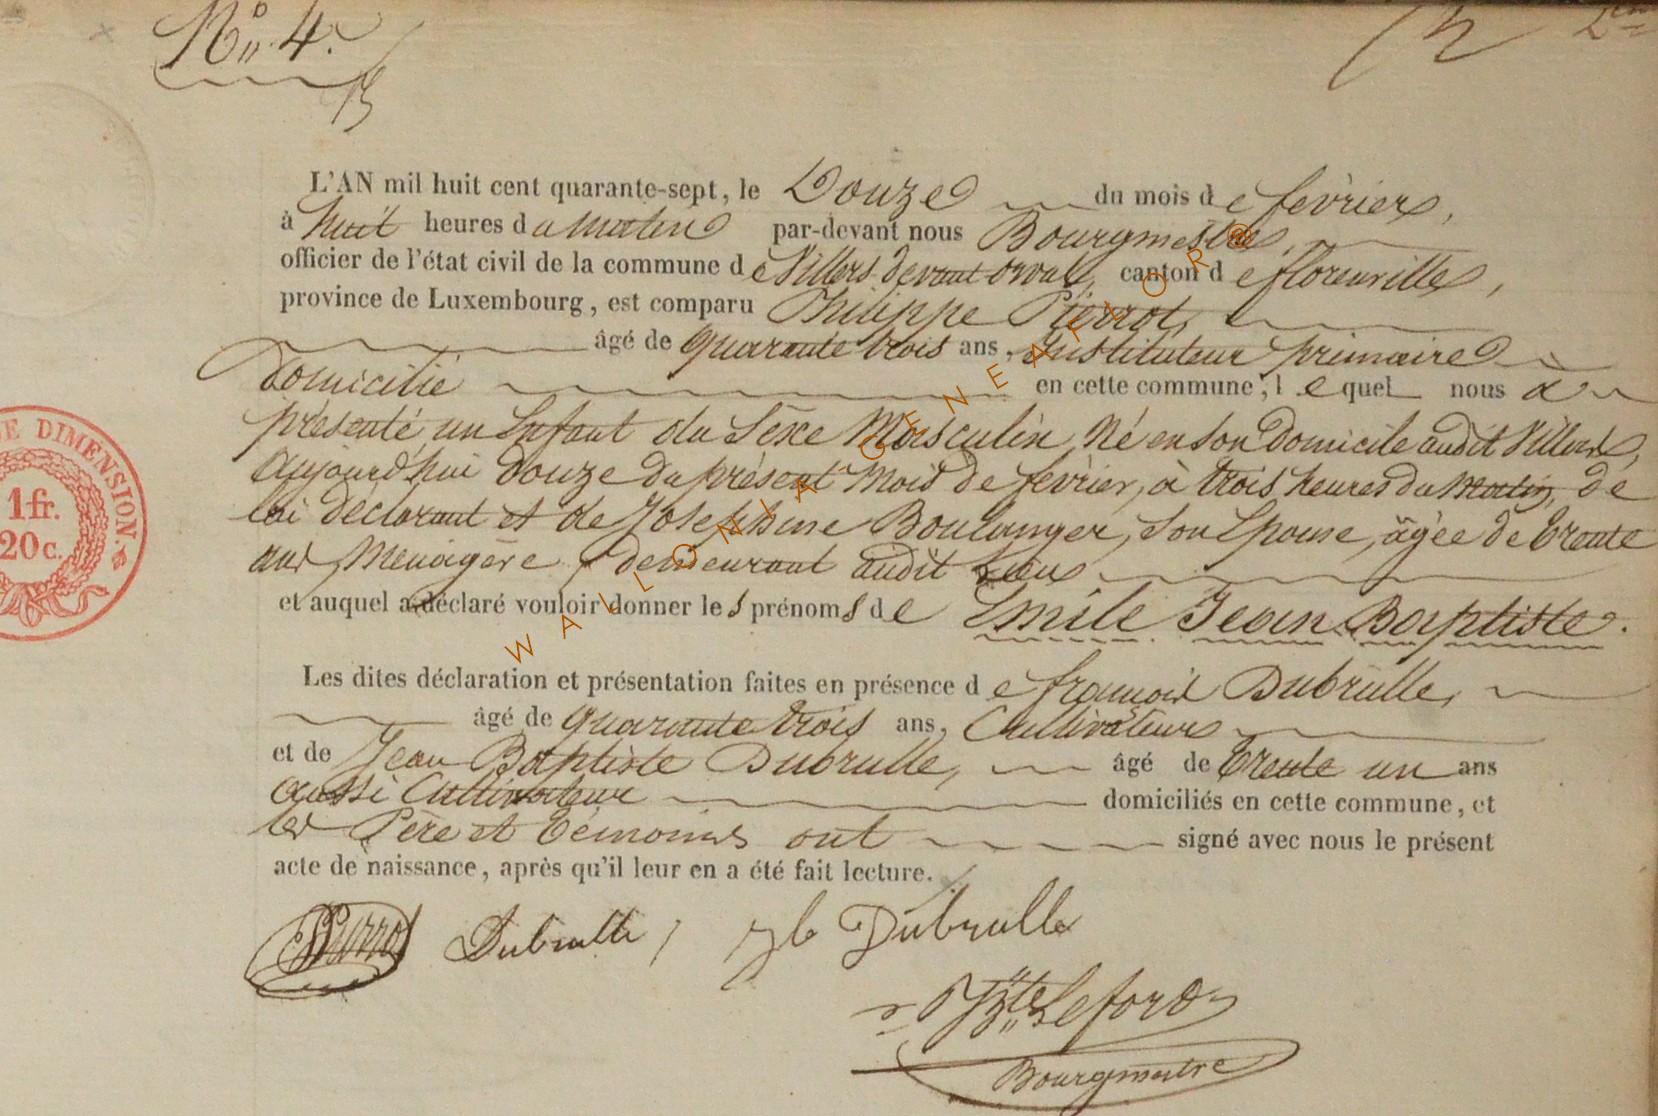 N° 4.
L'AN mil huit cent quarante-sept, le Douze du mois de février,
à huit heures du matin par-devant nous Bourgmestre,
officier de l'état civil de la commune de Villers devant orval, canton de florenville,
province de Luxembourg, est comparu Philippe Pierrot,
âgé de quarante trois ans, Instituteur primaire
domicilié en cette commune; lequel nous a
présenté un Enfant du Sexe Masculin, Né en son Domicile audit Villers,
Aujourd'hui douze du présent Mois de février, à trois heures du Matin, de
lui déclarant et de Josephine Boulanger, Son Epouse, âgée de trente
ans, Menagère, demeurant audit Lieu
et auquel a déclaré vouloir donner les prénoms de Emile Jean Baptiste.
Les dites déclaration et présentation faites en présence de françois Dubrulle,
âgé de quarante trois ans, Cultivateur
et de Jean Baptiste Dubrulle, âgé de trente un ans
aussi Cultivateur domiciliés en cette commune, et
les Père et témoins ont signé avec nous le présent
acte de naissance, après qu'il leur en a été fait lecture.
Pierrot Dubrulle, Jb Dubrulle
Bourgmestre
DE DIMENSION
1 fr.
20 c.
WALLONIA GENEALOR ®